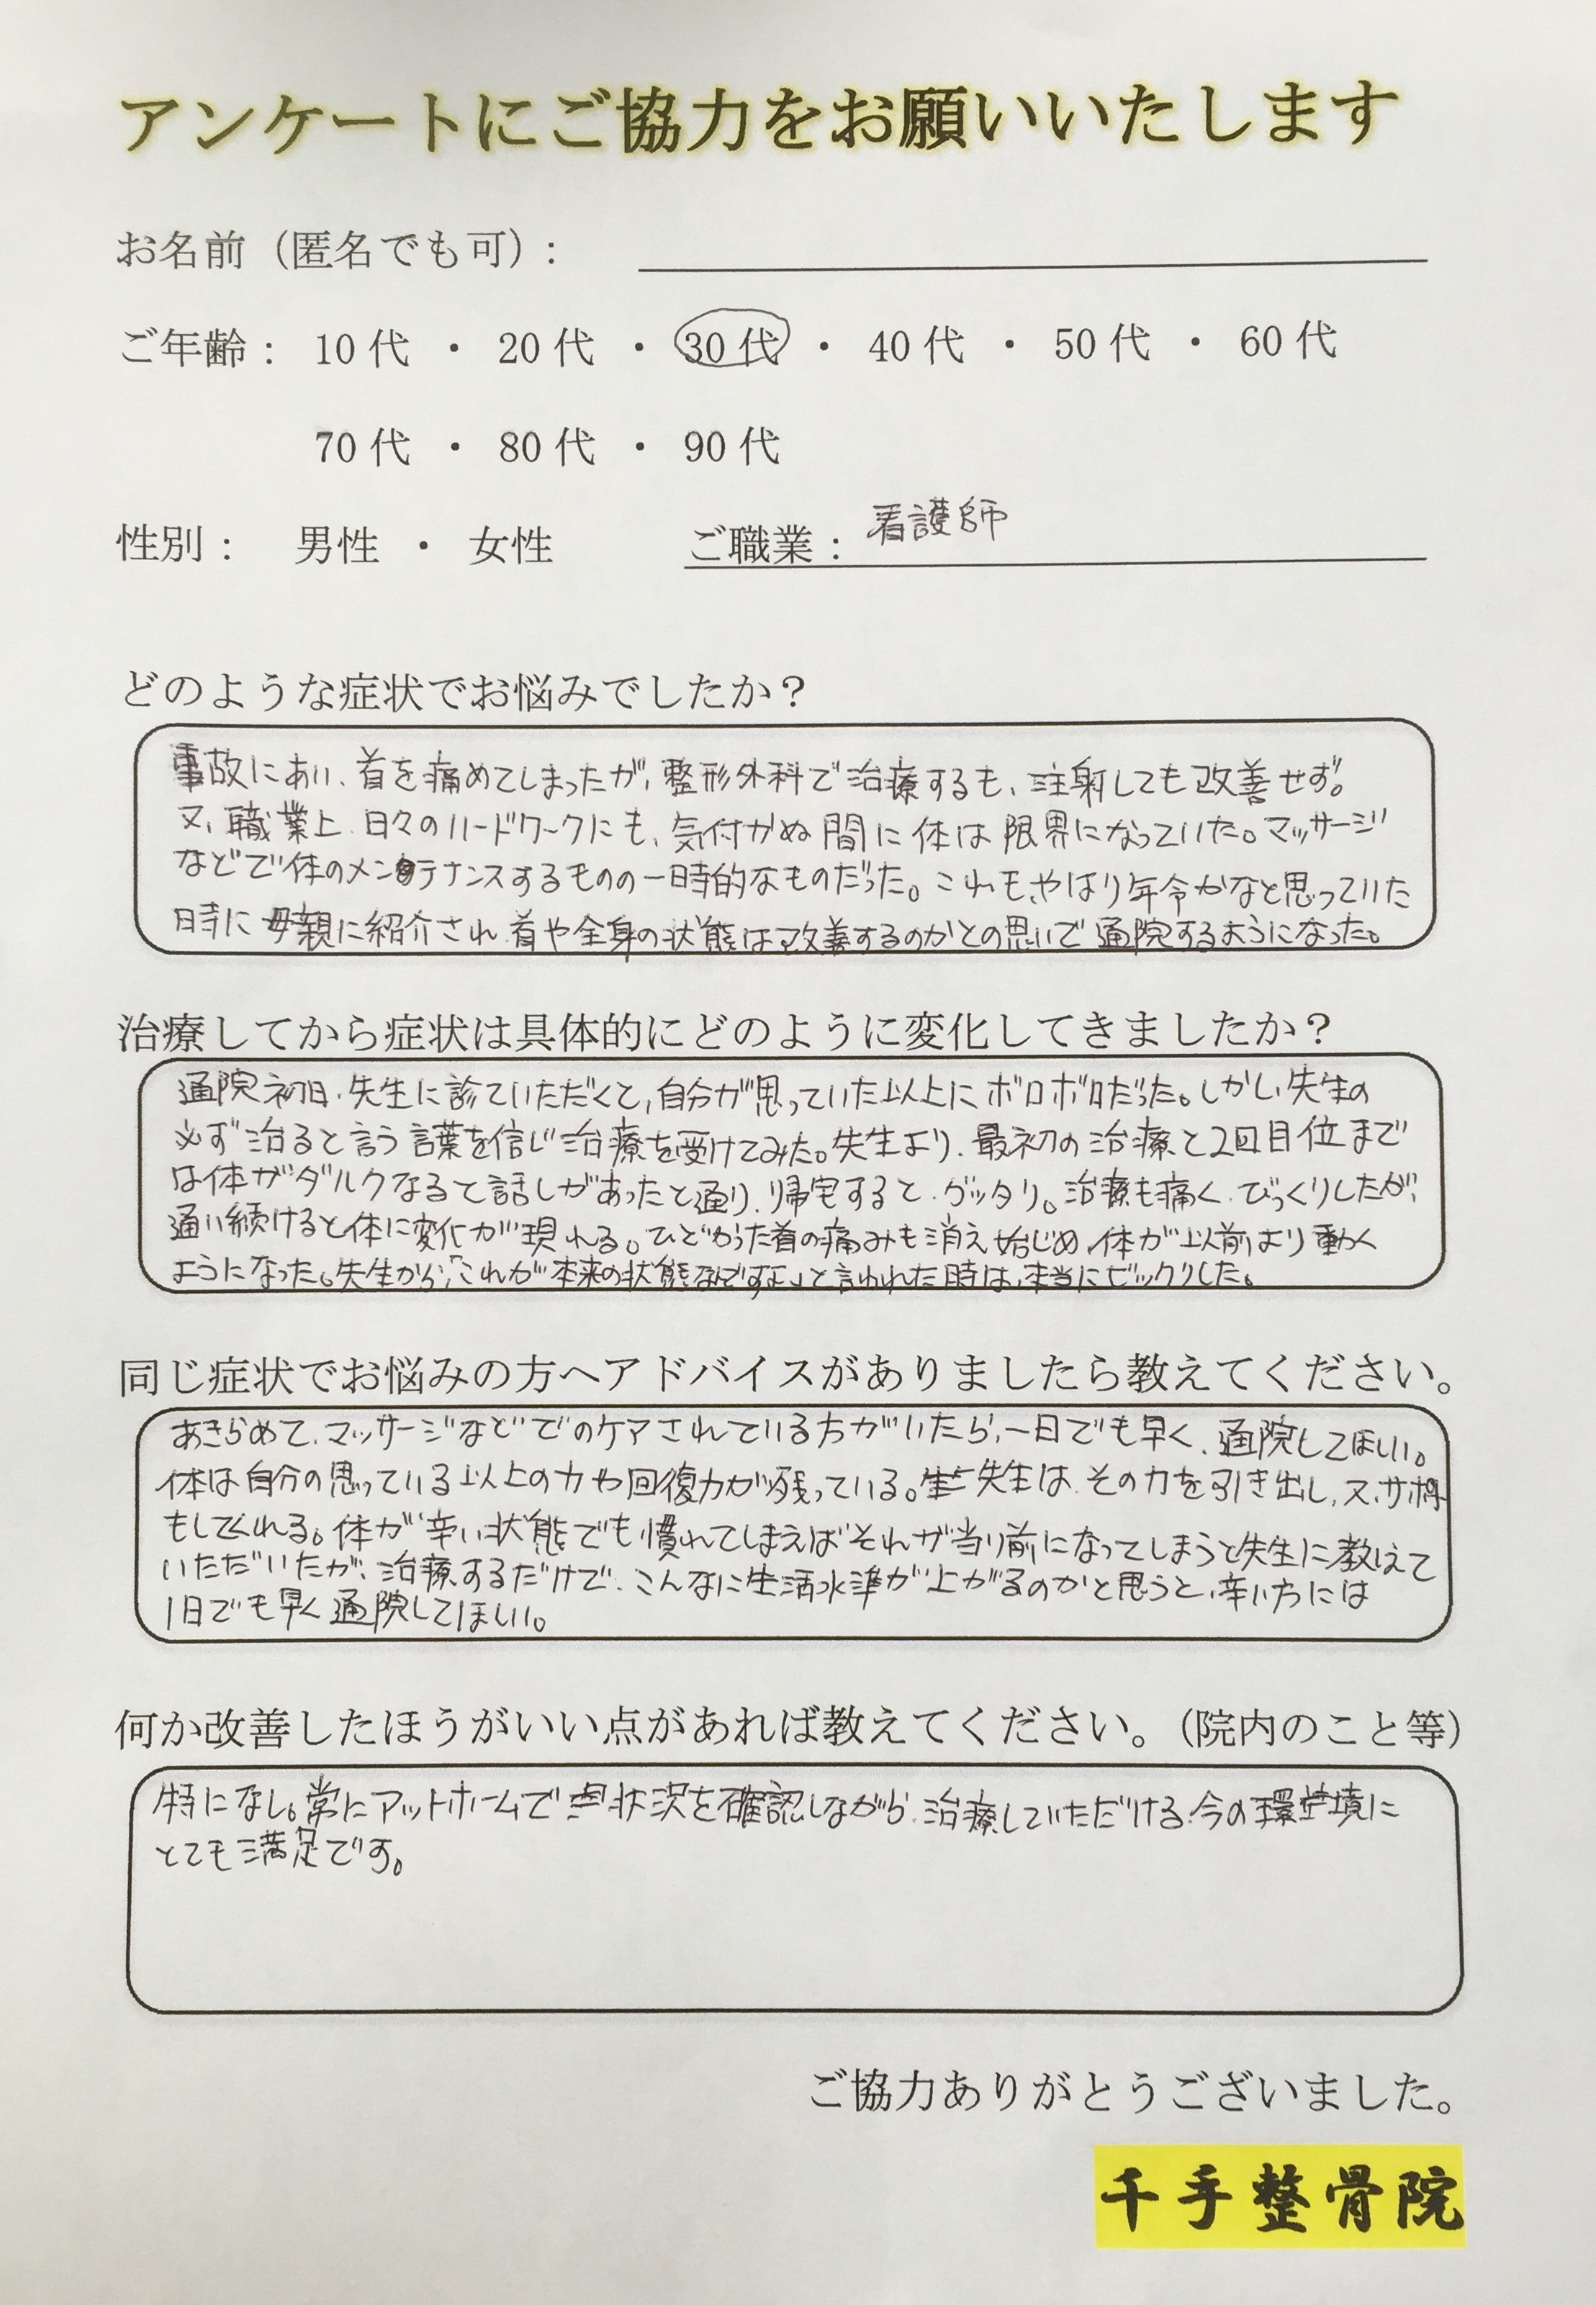 アンケートにご協力をお願いいたします
お名前（匿名でも可）：
ご年齢： 10代 ・ 20代 ・ 30代 ・ 40代 ・ 50代 ・ 60代
70代 ・ 80代 ・ 90代
性別： 男性 ・ 女性 ご職業：看護師
どのような症状でお悩みでしたか？
事故にあい、首を痛めてしまったが、整形外科で治療するも、注射しても改善せず。
又、職業上、日々のハードワークにも、気付かぬ間に体は限界になっていた。マッサージ
などで体のメンテナンスするものの一時的なものだった。これも、やはり年令かなと思っていた
時に母親に紹介され、首や全身の状態は改善するのかとの思いで通院するようになった。
治療してから症状は具体的にどのように変化してきましたか？
通院初日、先生に診ていただくと、自分が思っていた以上にボロボロだった。しかし、先生の
必ず治ると言う言葉を信じ治療を受けてみた。先生より、最初の治療と2回目位まで
は体がダルクなると話しがあったと通り、帰宅すると、グッタリ。治療も痛く、びっくりしたが、
通い続けると体に変化が現れる。ひどかった首の痛みも消え始じめ、体が以前より動く
ようになった。先生から、「これが本来の状態なんですよ」と言われた時は、本当にビックリした。
同じ症状でお悩みの方へアドバイスがありましたら教えてください。
あきらめて、マッサージなどでのケアされている方がいたら、一日でも早く、通院してほしい。
体は自分の思っている以上の力や回復力が残っている。先生は、その力を引き出し、又、サポート
もしてくれる。体が辛い状態でも慣れてしまえばそれが当り前になってしまうと先生に教えて
いただいたが、治療するだけで、こんなに生活水準が上がるのかと思うと、辛い方には
1日でも早く通院してほしい。
何か改善したほうがいい点があれば教えてください。（院内のこと等）
特になし。常にアットホームで状況を確認しながら、治療していただける、今の環境に
とても満足です。
ご協力ありがとうございました。
千手整骨院